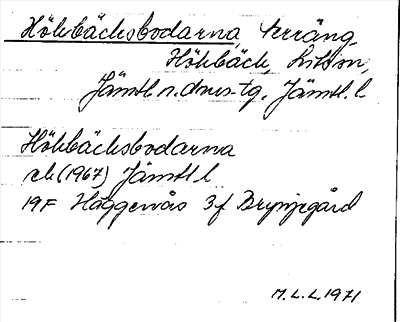 Hökbäcksbodarna, terräng,
Hökbäck, Lits sn,
Jämtl. n. doms-tg, Jämtl. l
Hökbäcksbodarna
ek (1967) Jämtl l
19F Häggenås 3f Brynjegård
M.L.L. 1971